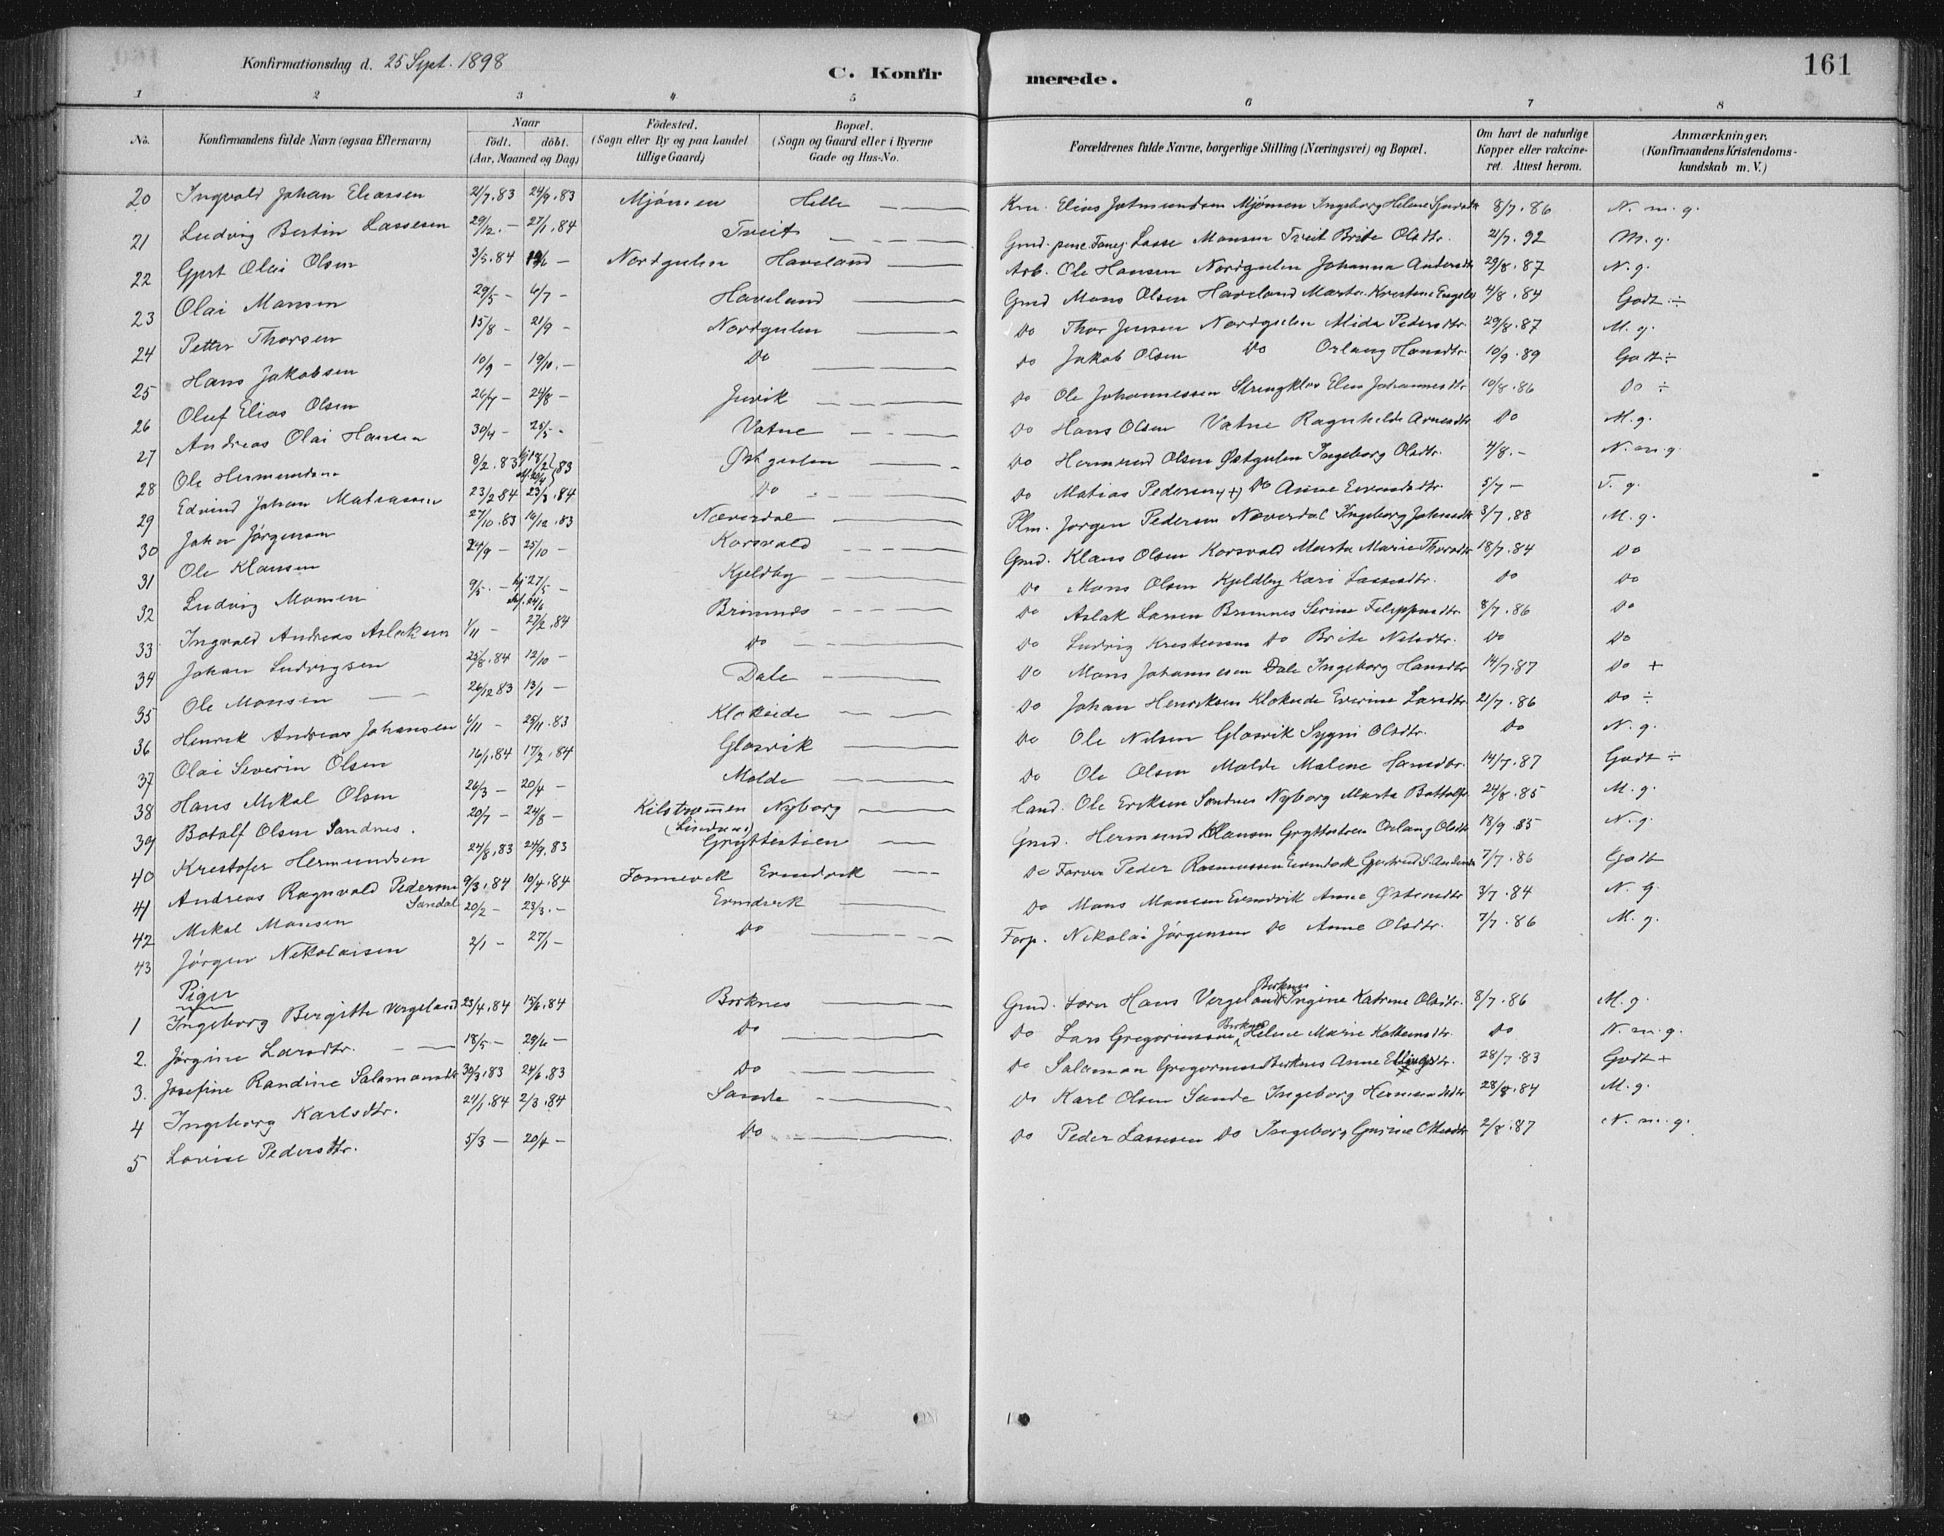 Konfirmationsdag d. 25 Sept. 1898
C. Konfirmerede.
161
1 2 3 4 5 6 7 8
No. Konfirmandens fulde Navn (ogsaa Efternavn) Naar födt. döbt. (Aar, Maaned og Dag) Födested. (Sogn eller By og paa Landet tillige Gaard) Bopæl. (Sogn og Gaard eller i Byerne Gade og Hus-No. Forældrenes fulde Navne, borgerlige Stilling (Næringsvei) og Bopæl. Om havt de naturlige Kopper eller vakcineret. Attest herom. Anmærkninger. (Konfirmandens Kristendomskundskab m. V.)
20 Ingvald Johan Eliassen 21/7.83 24/9.83 Mjömen Helle Elias Mjömen Ingeborg Helene 8/7.86 N. m. g.
21 Ludvig Bertin Lassesen 29/12.- 27/1.84 Tveit Gmd. Lasse Monsen Tveit Brite Olsdtr. 21/7.92 M. g.
22 Gjert Olai Olsen 3/5.84 /6 - Nordgulen Haveland Arb. Ole Hansen Nordgulen Johanna Andersdtr 29/8.87 N. g.
23 Olai Monsen 29/5 - 6/7 - Haveland Gmd Mons Olsen Haveland Marta Kristene 4/8.84 Godt ÷
24 Petter Thorsen 15/8 - 21/9 - Nordgulen Do Thor Jensen Nordgulen Mida Pedersdtr. 29/8.87 M. g.
25 Hans Jakobsen 10/9 - 19/10.- Do Do Jakob Olsen Do Orlaug Hansdtr. 10/9.89 Godt ÷
26 Oluf Elias Olsen 26/7 - 24/8 - Juvik Do Ole Johannessen Elen Johannesdtr 10/8.86 Do ÷
27 Andreas Olai Hansen 30/4 - 25/5 - Vatne Do Hans Olsen Vatne Ragnhilde Arnesdtr Do M. g.
28 Ole Hermundsen 8/2.83 18/2 83 Östgulen Do Hermund Olsen Östgulen Ingeborg Olsdtr. 4/8.- N. m. g.
29 Edvind Johan Matiassen 23/2 84 23/3.84 Do Do Matias Pedersen (+) Do Anne 5/7 - T. g.
30 Johan Jörgensen 27/10.83 16/12.83 Næverdal Plm. Jorgen Pedersen Næverdal Ingeborg 3/7.88 M. g.
31 Ole Klausen 24/9 - 25/10 - Korsvald Gmd. Klaus Olsen Korsvald Marta Marie Thorsdtr 18/7.84 Do
32 Ludvig Monsen 9/5.- 27/5 - Kjeldby Do Mons Olsen Kjeldby Kari Lassesdtr. Do Do
33 Ingvald Andreas Aslaksen 1/11 - 27/2.84 Brimnes Do Aslak Larsen Brimnes Serine Filippusdtr 8/7.86 Do
34 Johan Ludvigsen 25/8.84 12/10 - Do Do Ludvig Krestensen Do Brite Nilsdtr. Do Do
35 Ole Monsen 26/12 83 13/1 - Dale Do Mons Johannesen Dale Ingeborg Hansdtr 14/7.87 Do +
36 Henrik Andreas Johansen 6/11 - 25/11.83 Klokeide Do Johan Henriksen Klokeide Everine Larsdtr 21/7.86 Do ÷
37 Olai Severin Olsen 16/1.84 17/2.84 Glosvik Do Ole Nilsen Glosvik Sygni Olsdtr. Do N. g.
38 Hans Mikal Olsen 26/3 - 20/4 - Molde Do Ole Olsen Molde Malene Hansdtr. 14/7.87 Godt ÷
39 Botolf Olsen Sandnes. 20/7 - 24/8 - Kilstrømmen (Lindaas) Nyborg Land. Ole Eriksen Sandnes Nyborg Marta 24/8.85 M. g.
40 Krestofer Hermundsen 24/8.83 24/9.83 Gryttestöen Gmd. Hermund Hansen Orlaug Olsdtr 18/9.85 N. g.
41 Andreas Ragnvald Pedersen Sandal 9/3.84 19/4.84 Eivindvik Do Farver Peder Rasmussen 7/7.86 Godt
42 Mikal Monsen 20/2 - 23/3.- Eivindvik Do Mons Monsen Eivindvik Anne 3/7.84 N. g
43 Jörgen Nikolaisen 2/1 - 27/1 - Do Forp. Nikolai Jörgensen Do Anne Olsdtr. 7/7.86 M. g.
Piger
1 Ingeborg Bergitte Vergeland 23/4.84 15/6.84 Birknes Gmd. Hans Vergeland Birknes Ingine Katrine Olsdtr. 8/7.86 M. g.
2. Jörgine Larsdtr. 18/5 - 29/6 - Do Do Lars Gregoriussen Birknes Helene Marie Do N. m. g.
3. Josefine Randine Salamonsdtr 30/3.83 24/6.83 Do Do Salamon Gregoriussen Birknes Anne 28/7.83 Godt +
4 Ingeborg Karlsdtr. 24/1.84 2/3.84 Sande Do Karl Olsen Sande Ingeborg Hermundsdtr 28/8.84 M. g.
5 Lovise Pedersdtr. 5/3 - 20/4 - Do Do Peder Lassesen Do Ingeborg Gurine 2/8.87 N. m. g.